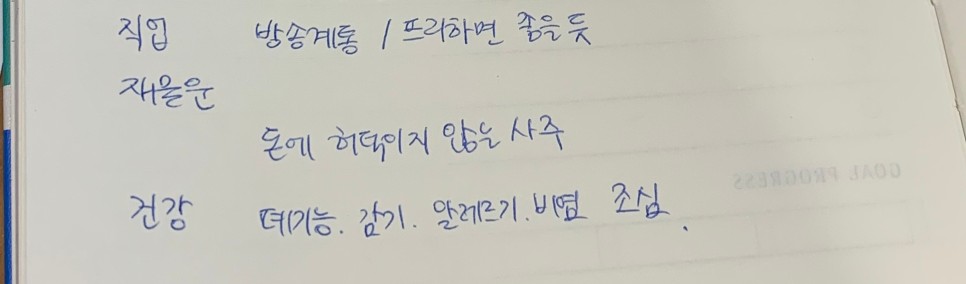 직업 방송계통 / 프리하면 좋을 듯
재물운
돈에 허덕이지 않는 사주
건강 폐기능. 감기. 알레르기. 비염 조심.
GOAL PROGRESS